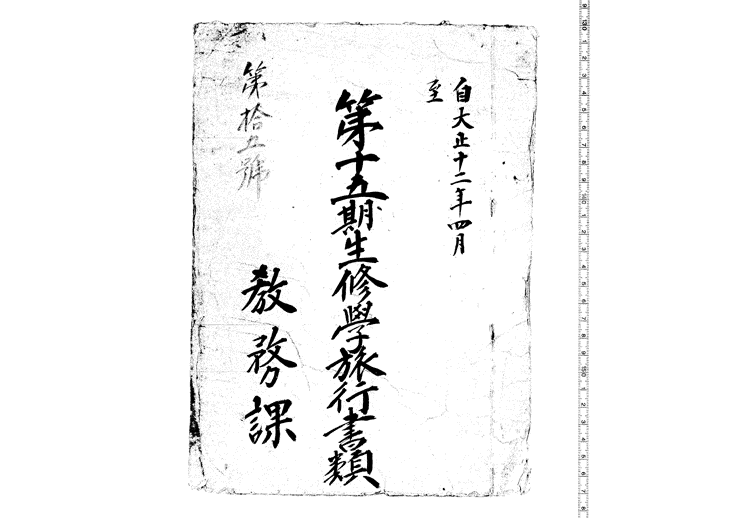 自大正十二年四月
至
第十五期生修學旅行書類
第拾五號
教務課